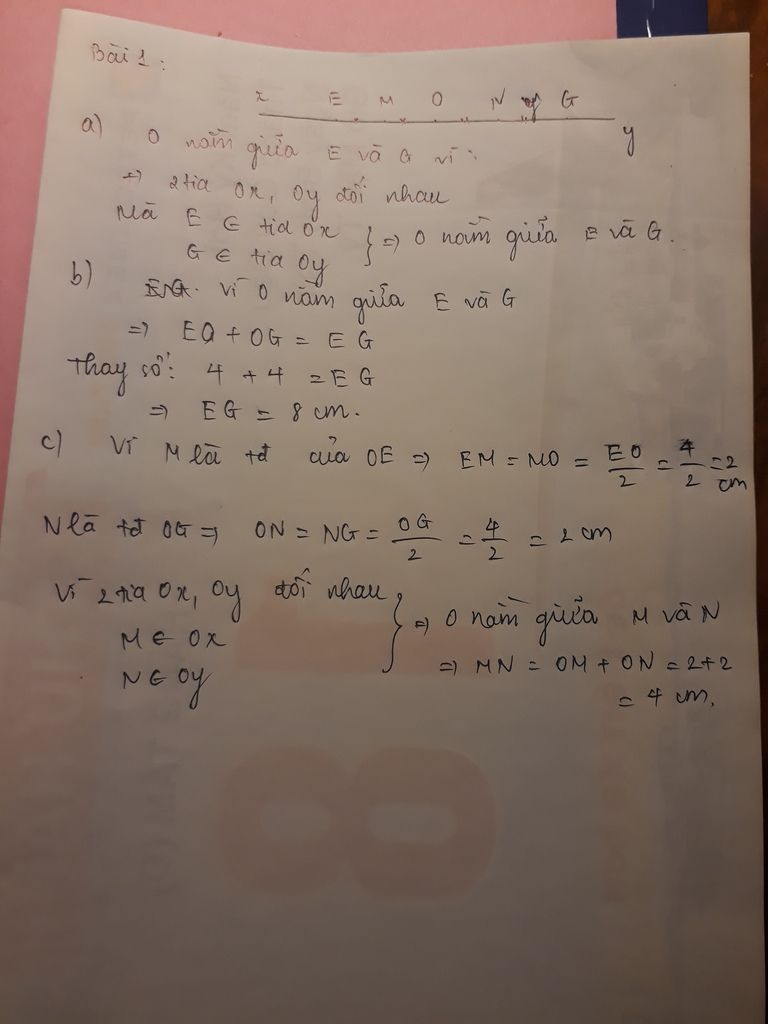 Bài 1:
x E M O N G
y
a) O nằm giữa E và G vì:
⇒ 2 tia Ox, Oy đối nhau
Mà E ∈ tia Ox
G ∈ tia Oy } ⇒ O nằm giữa E và G.
b) Vì O nằm giữa E và G
⇒ EO + OG = EG
Thay số: 4 + 4 = EG
⇒ EG = 8 cm.
c) Vì M là tđ của OE ⇒ EM = MO = EO/2 = 4/2 = 2 cm
N là tđ OG ⇒ ON = NG = OG/2 = 4/2 = 2 cm
Vì 2 tia Ox, Oy đối nhau
M ∈ Ox } ⇒ O nằm giữa M và N
N ∈ Oy ⇒ MN = OM + ON = 2+2
= 4 cm.